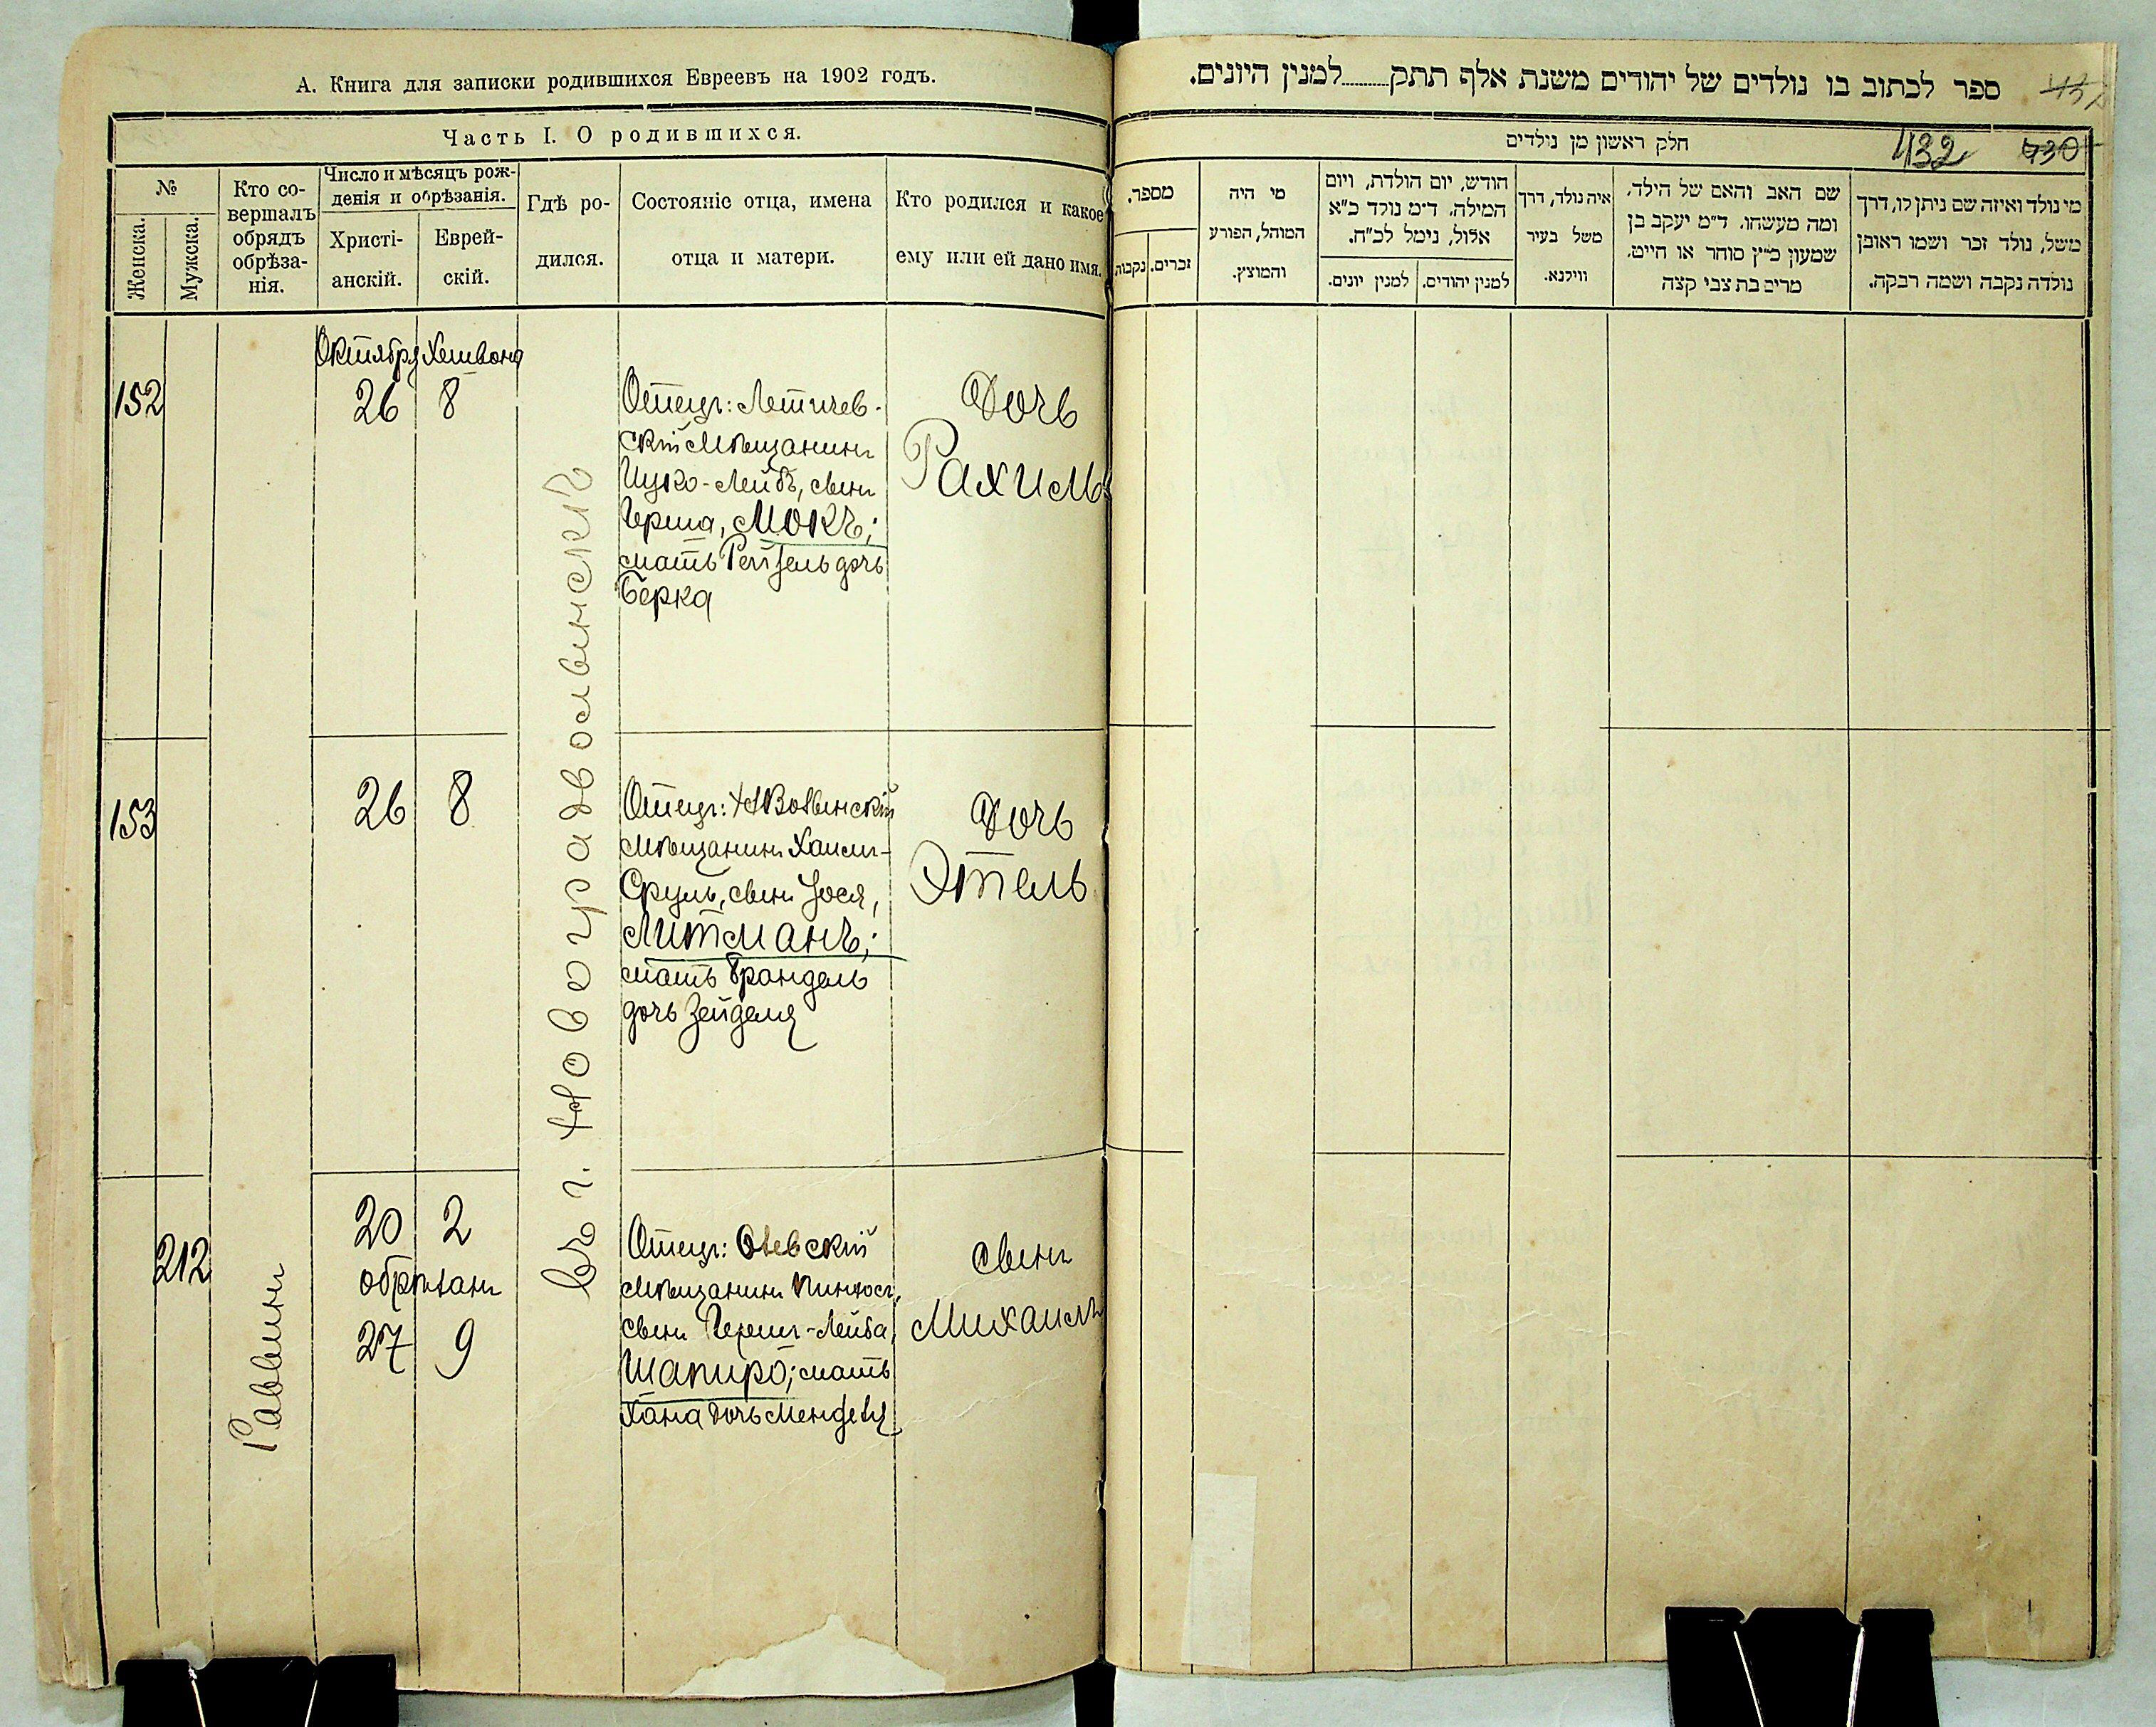 А. Книга для записки родившихся Евреевъ на 1902 годъ.
Часть I. О родившихся.
№
Женска.
Мужска.
Кто со-
вершалъ
обрядъ
обрѣза-
нія.
Число и мѣсяцъ рож-
денія и обрѣзанія.
Христі-
анскій.
Еврей-
скій.
Гдѣ ро-
дился.
Состояніе отца, имена
отца и матери.
Кто родился и какое
ему или ей дано имя.
Октября Хешвона
152
26 8
Отецъ: Летичев-
скій мѣщанинъ
Ицко-Лейбъ, сынъ
Герша, Мокъ;
мать Рейзель дочь
Берка
Дочь
Рахиль
въ г. Новоградволынскѣ
153
26 8
Отецъ: НВолынскій
мѣщанинъ Хаимъ-
Сруль, сынъ Іося,
Литманъ;
мать Брандель
дочь Зейделя
Дочь
Этель
212
Раввинъ
20 2
обрѣзанъ
27 9
Отецъ: Олевскій
мѣщанинъ Пинхосъ,
сынъ Гершъ-Лейба,
Шапиро; мать
Хана дочь Менделя
сынъ
Михаилъ
ספר לכתוב בו נולדים של יהודים משנת אלף תתק........למנין היונים.
חלק ראשון מן נילדים
432 430
מספר.
זכרים.
נקבות
מי היה
המוהל, הפורע
והמוצץ.
חודש, יום הולדת, ויום
המילה. ד״מ נולד כ״א
אלול, נימל לכ״ח.
למנין יהודים.
למנין יונים.
איה נולד, דרך
משל בעיר
ווילנא.
שם האב והאם של הילד,
ומה מעשהו. ד״מ יעקב בן
שמעון כ״ץ סוחר או חייט,
מרים בת צבי קצה
מי נולד ואיזה שם ניתן לו, דרך
משל, נולד זכר ושמו ראובן
נולדה נקבה ושמה רבקה.